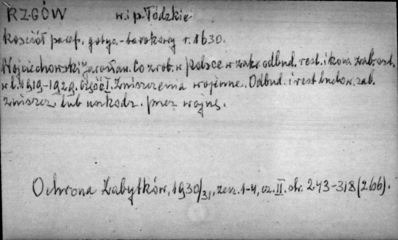 RZGÓW w. i p. Łódzkie
Kościół paraf. gotyc.-barokowy r. 1630.
Wojciechowski Jarosław. Co zrob. w Polsce w zakr. odbud. rest. i kons. zab. arch.
w l. 1919-1929. Część I. Zniszczenia wojenne. Odbud. i rest. budow. zab.
zniszcz. lub uszkodz. przez wojnę.
Ochrona Zabytków, 1930/31, zesz. 1-4, cz. II. str. 243-318 (266).